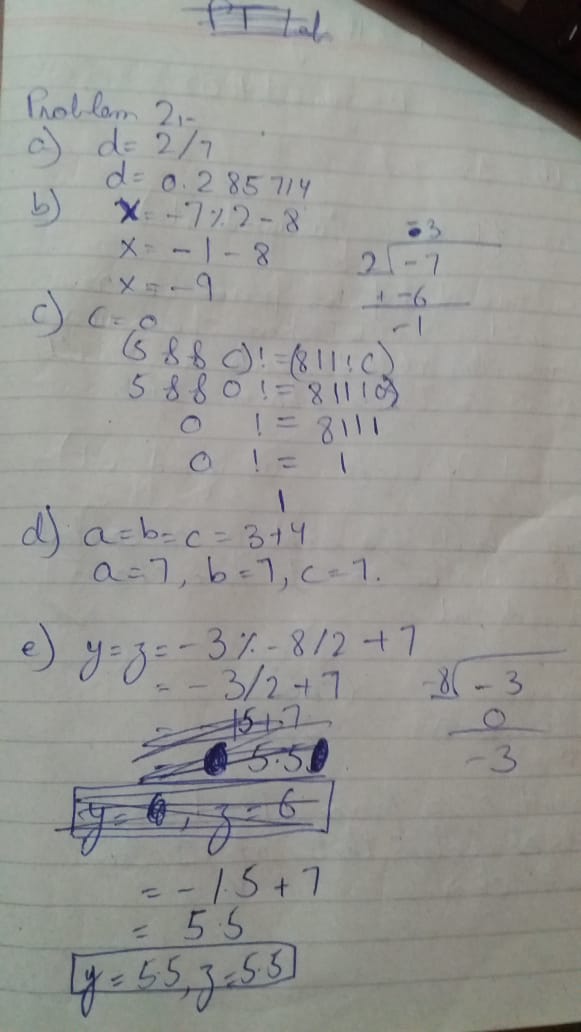 PT Lab
Problem 2:-
a) d= 2/7
d= 0.285714
b) x= -7%2-8
x= -1-8
x= -9
-3
2 -7
+ -6
-1
c) c=0
(5 && c)!=(8||!c)
5 && 0 != 8||!0)
0 != 8||1
0 != 1
1
d) a=b=c=3+4
a=7, b=7, c=7.
e) y=z=-3%-8/2+7
= -3/2+7
-8 -3
0
-3
= -1.5+7
= 5.5
y=5.5, z=5.5